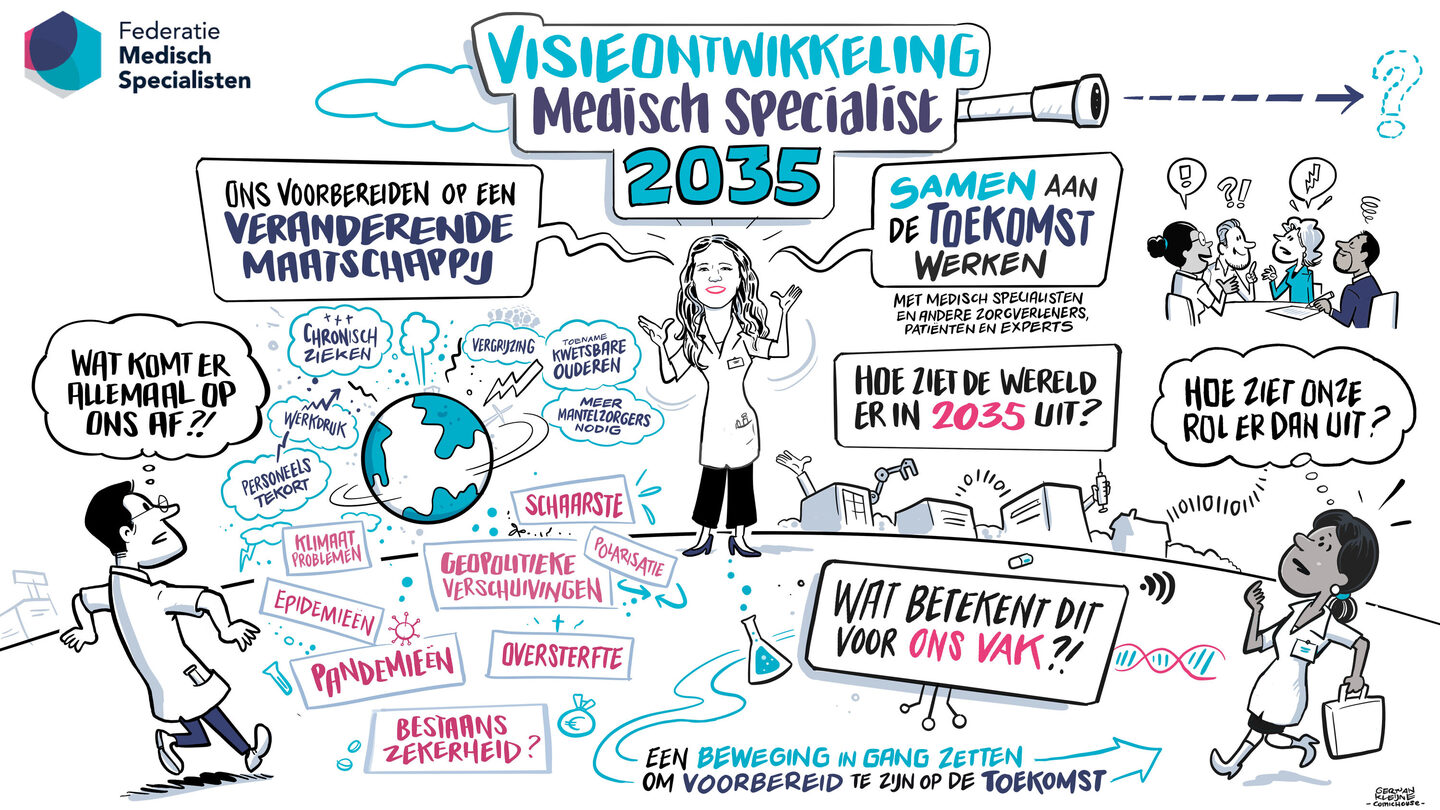 Federatie
Medisch
Specialisten
VISIEONTWIKKELING
MEDISCH SPECIALIST
2035
?
ONS VOORBEREIDEN OP EEN
VERANDERENDE
MAATSCHAPPIJ
SAMEN AAN
DE TOEKOMST
WERKEN
MET MEDISCH SPECIALISTEN
EN ANDERE ZORGVERLENERS,
PATIËNTEN EN EXPERTS
!
?!
WAT KOMT ER
ALLEMAAL OP
ONS AF?!
+++
CHRONISCH
ZIEKEN
VERGRIJZING
TOENAME
KWETSBARE
OUDEREN
WERKDRUK
MEER
MANTELZORGERS
NODIG
PERSONEELS
TEKORT
HOE ZIET DE WERELD
ER IN 2035 UIT?
HOE ZIET ONZE
ROL ER DAN UIT?
SCHAARSTE
KLIMAAT
PROBLEMEN
GEOPOLITIEKE
VERSCHUIVINGEN
POLARISATIE
EPIDEMIEËN
PANDEMIEËN
OVERSTERFTE
BESTAANS
ZEKERHEID?
€
WAT BETEKENT DIT
VOOR ONS VAK?!
EEN BEWEGING IN GANG ZETTEN
OM VOORBEREID TE ZIJN OP DE TOEKOMST
GERMAN
KLEIJNE
-COMICHOUSE-